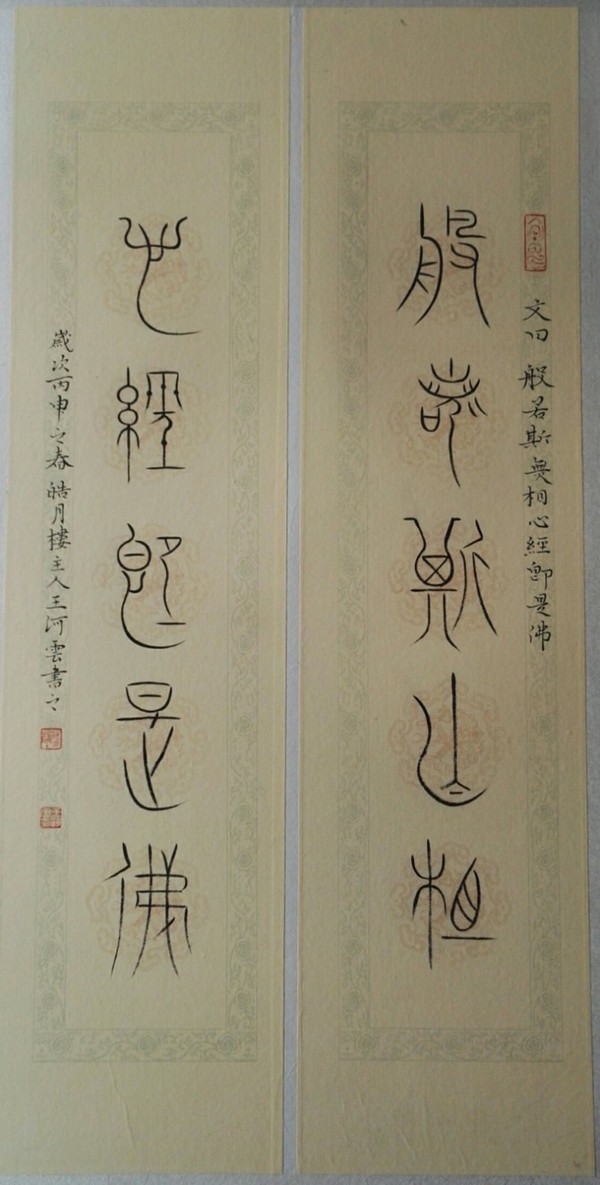 文曰 般若斯無相心經即是佛
般若斯無相
心經即是佛
歲次丙申之春皓月樓主人王河雲書之